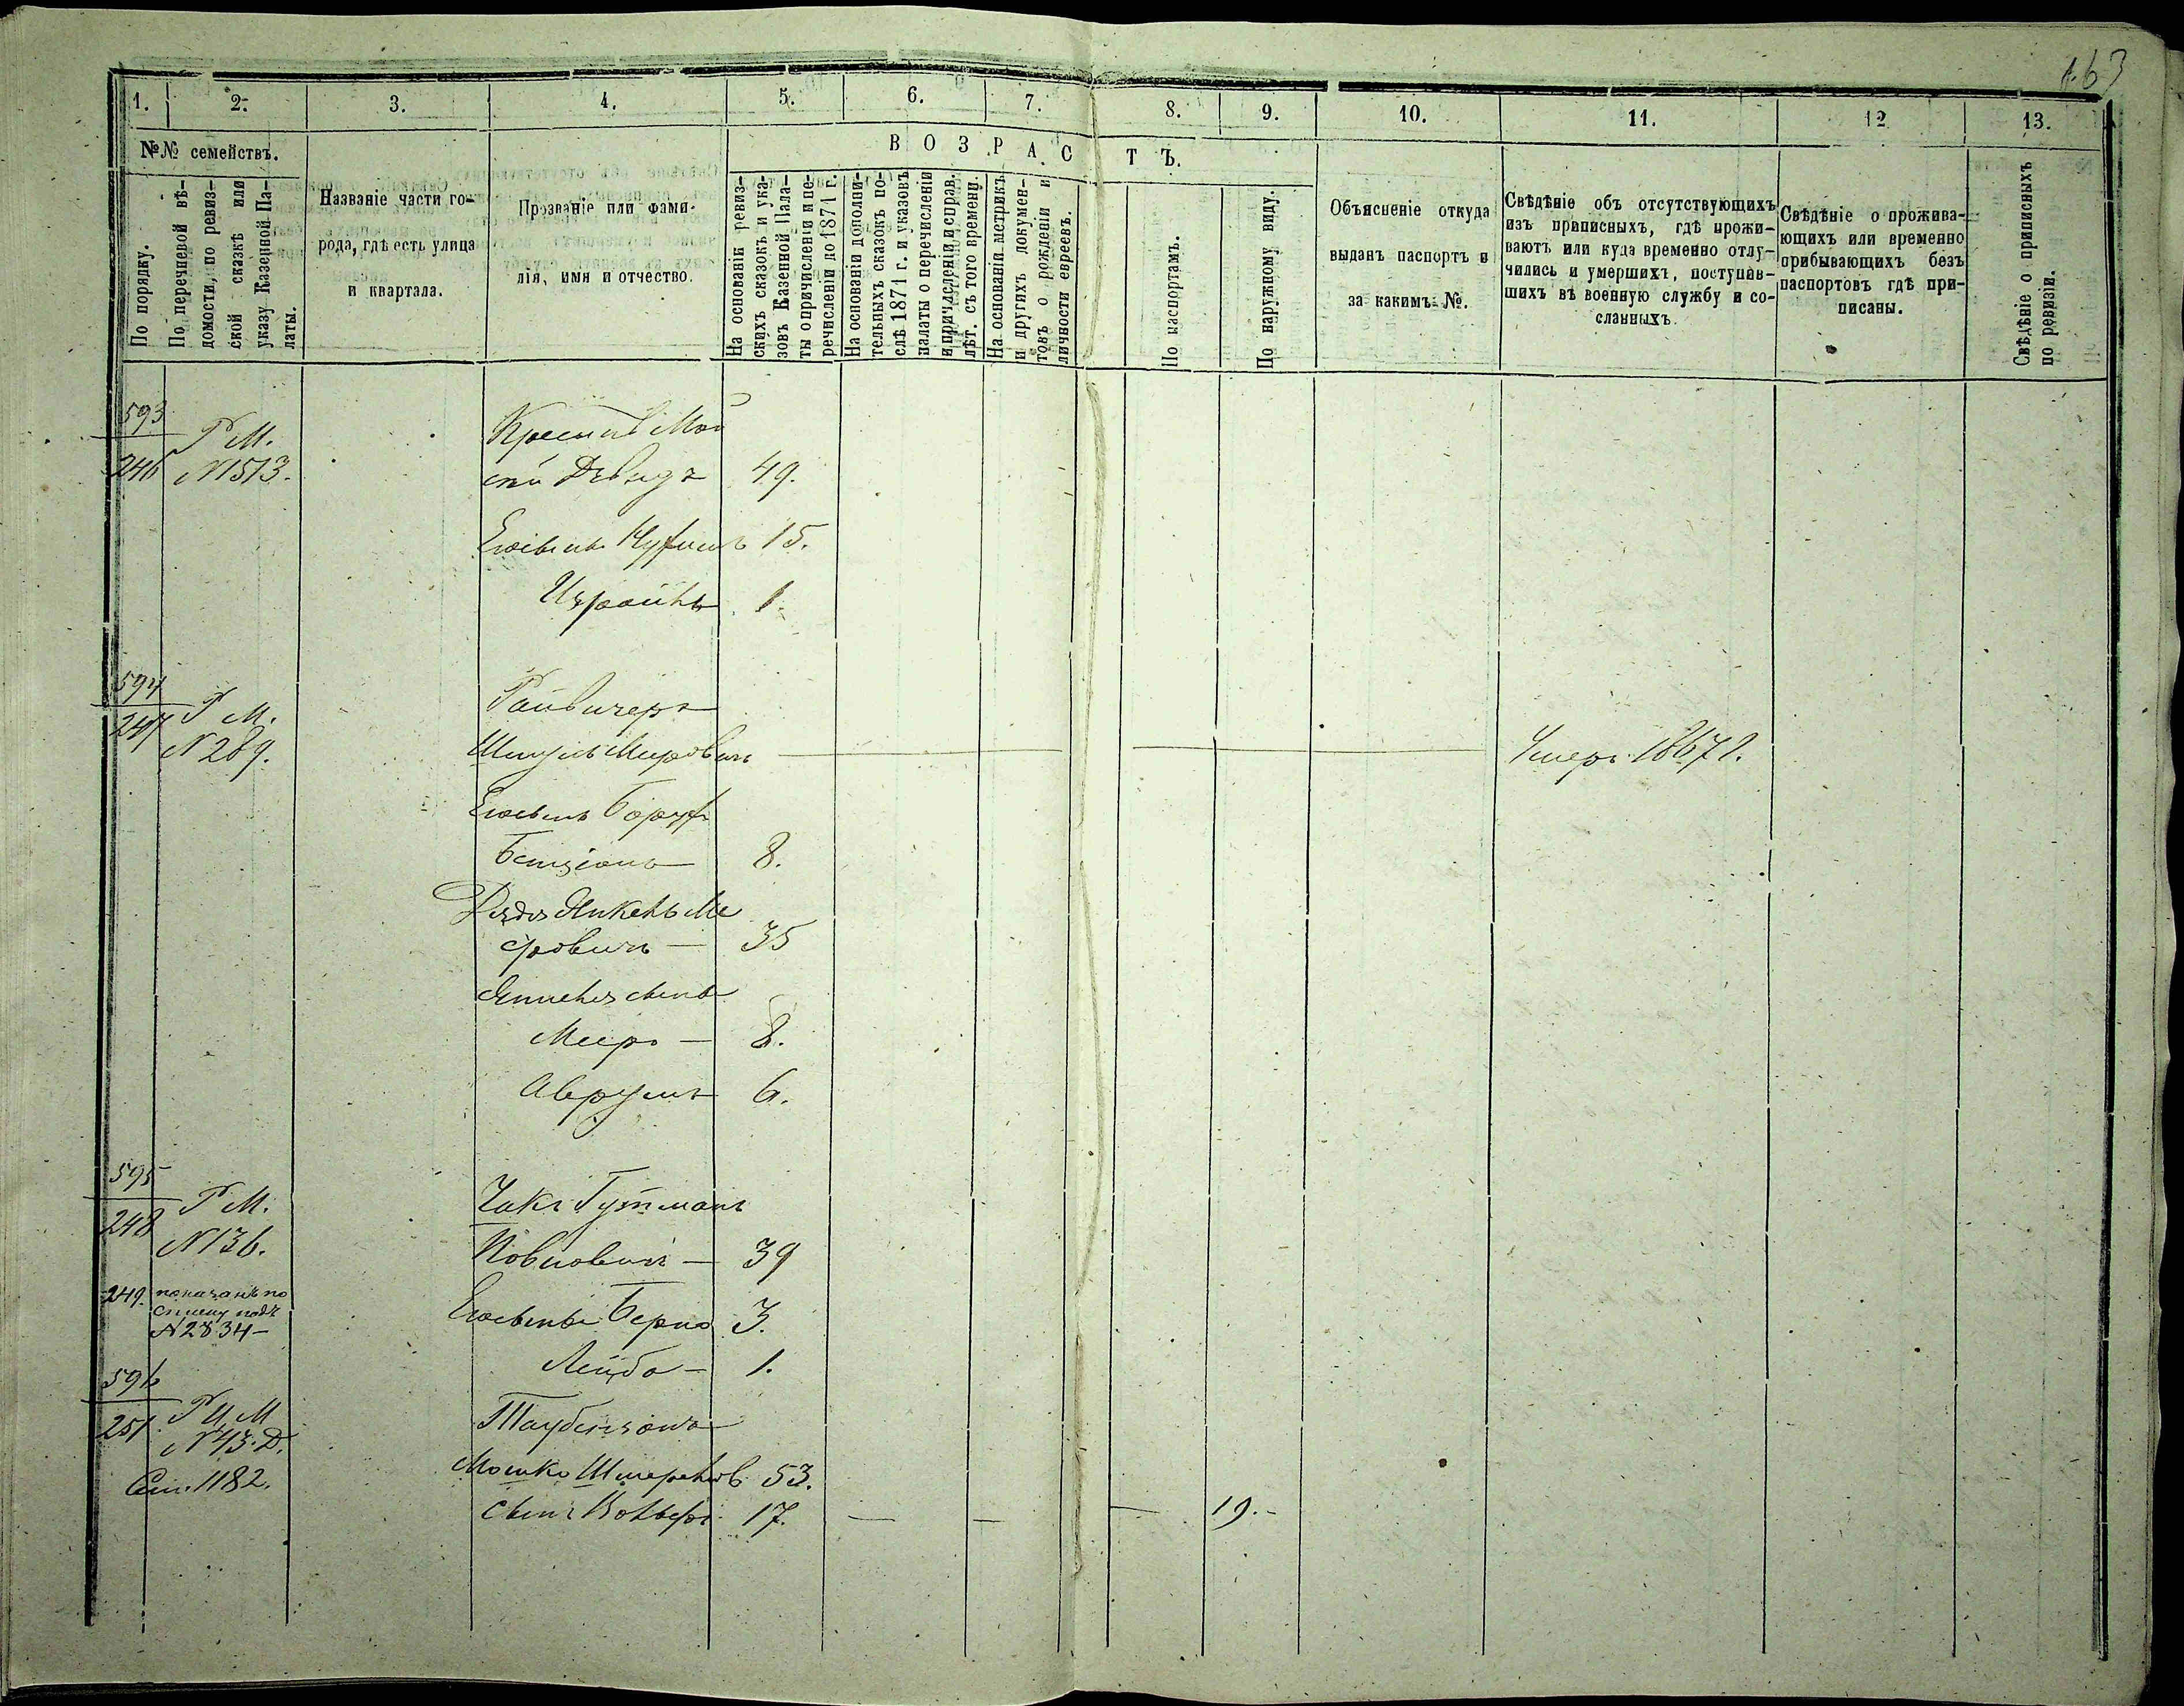 163
1. 2. 3. 4. 5. 6. 7. 8. 9. 10. 11. 12 13.
№№ семействъ.
В О З Р А С Т Ъ.
По порядку.
По перечневой вѣ-
домости, по ревиз-
ской сказкѣ или
указу Казенной Па-
латы.
Названіе части го-
рода, гдѣ есть улица
и квартала.
Прозваніе или фами-
лія, имя и отчество.
На основаніи ревиз-
скихъ сказокъ и ука-
зовъ Казенной Пала-
ты о причисленіи и пе-
речисленіи до 1871 г.
На основаніи дополни-
тельныхъ сказокъ по-
слѣ 1871 г. и указовъ
палаты о перечисленіи
и причисленіи и справ.
лѣт. съ того времени.
На основаніи метрикъ
и другихъ докумен-
товъ о рожденіи и
личности евреевъ.
По паспортамъ.
По наружному виду.
Объясненіе откуда
выданъ паспортъ и
за какимъ №.
Свѣдѣніе объ отсутствующихъ
изъ приписныхъ, гдѣ прожи-
ваютъ или куда временно отлу-
чились и умершихъ, поступав-
шихъ въ военную службу и со-
сланныхъ.
Свѣдѣніе о прожива-
ющихъ или временно
прибывающихъ безъ
паспортовъ гдѣ при-
писаны.
Свѣдѣніе о приписныхъ
по ревизіи.
593
246 Р М.
N 1513.
Давидъ 49.
Его сынъ 15.
1.
594
247 Р М.
N 289.
Райвичеръ
Шмуль Меировичъ — Умеръ 1867 г.
Его сынъ Борухъ
Бенціонъ 8.
Дядя Янкель Ме
еровичъ — 35
Янкеля сыновья
Мееръ — 8.
Аврумъ 6.
595
248 Р М.
N 136.
Чакъ Гутманъ
39
249. показанъ по
списку подъ
N 2834 —
Его сынъ Берко 3.
Лейба — 1.
596
251. Р Ц М
N 43. Д.
Сем. 1182.
Таубензонъ
Мошко Шмерелевъ 53.
сынъ Вольфъ 17. — — — 19. -